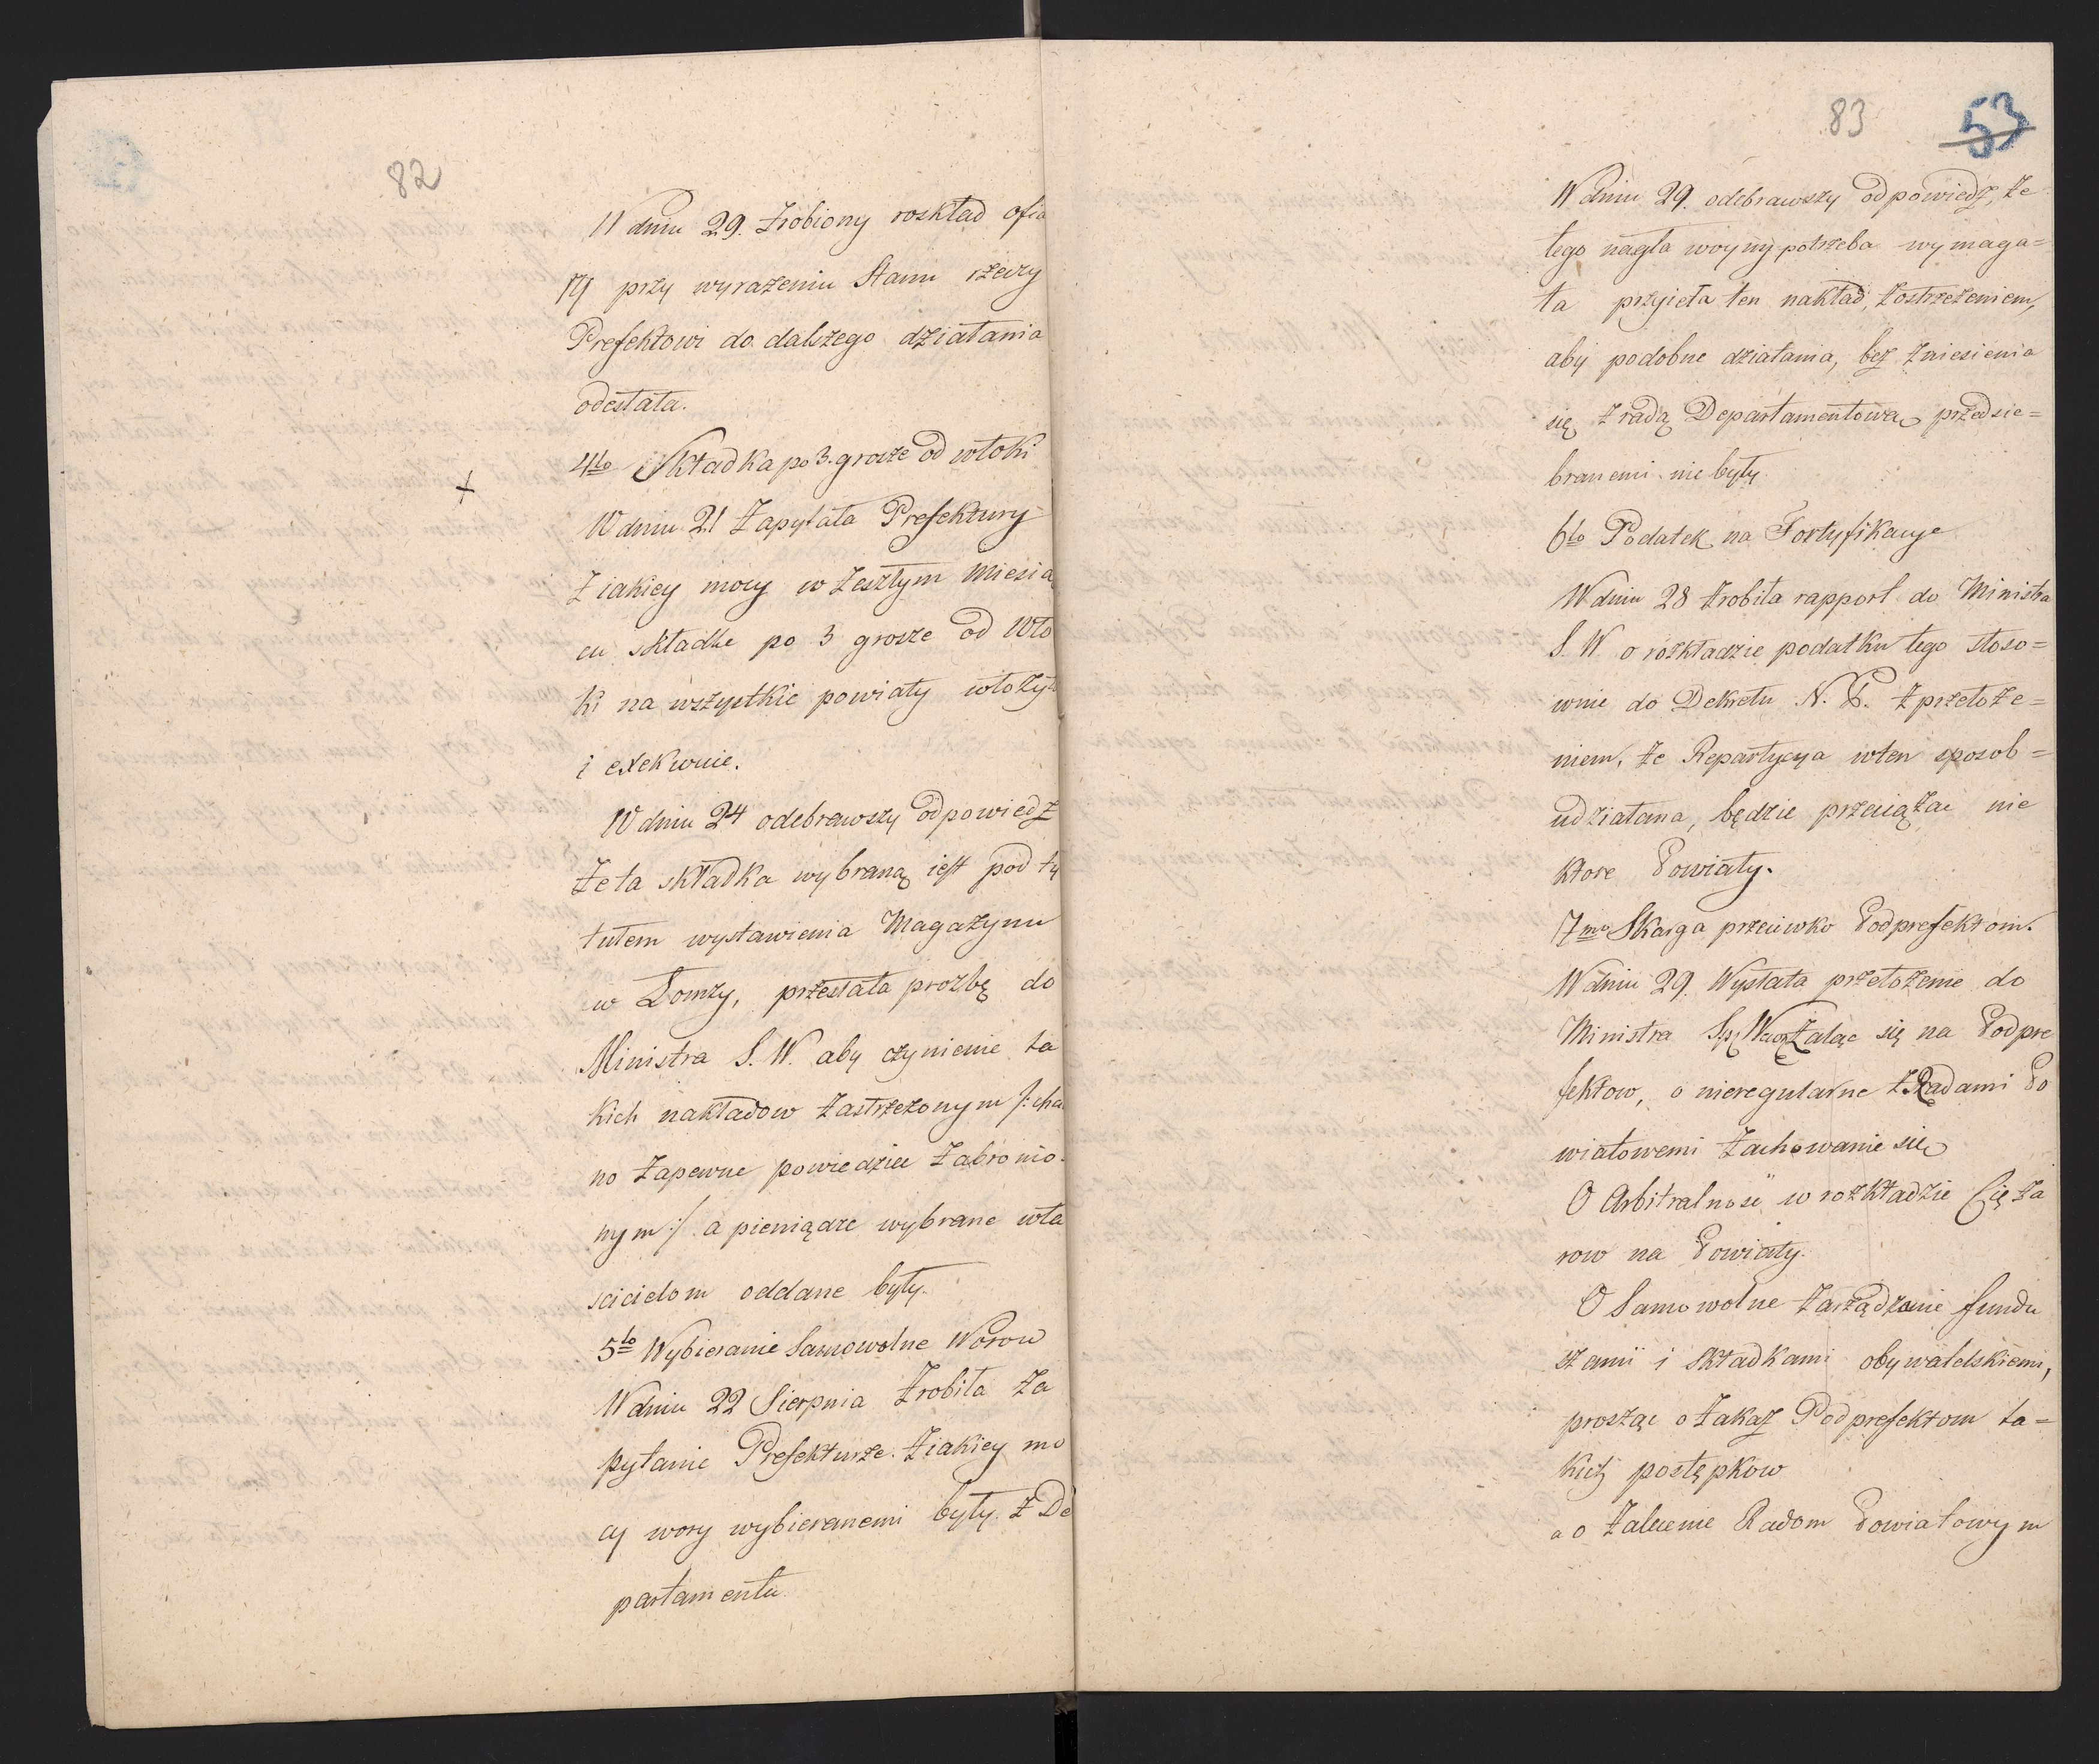 82
W dniu 29. Zrobiony roskład ofia
ry przy wyrażeniu Stanu rzeczy
Prefektowi do dalszego działania
odesłała.
4to Składka po 3. grosze od włoki
+
W dniu 21 Zapytała Prefektury
Z iakiey mocy w Zeszłym Miesią
cu składke po 3 grosze od Wło
ki na wszystkie powiaty włożyła
i exekwuie.
W dniu 24 odebrawszy odpowiedz
Ze ta składka wybraną iest pod ty
tułem wystawienia Magazynu
w Łomzy, przesłała prozbę do
Ministra S. W. aby czynienie ta
kich nakładow zastrzeżonym /: cha
no Zapewne powiedziec Zabronio
nym :/ a pieniądze wybrane wła
scicielom oddane były.
5to Wybieranie Samowolne Worow
W dniu 22 Sierpnia Zrobiła Za
pytanie Prefekturze. Z iakiey mo
cy wory wybieranemi były. Z De
partamentu
83
53
W dniu 29. odebrawszy odpowiedz, że
tego nagła woyny potrzeba wymaga=
ła przyieła ten nakład, Zostrzeżeniem,
aby podobne działania, bez Zniesienia
się z radą Departamentową przedsie=
branemi nie były.
6to Podatek na Fortyfikacye
W dniu 28 Zrobiła rapport do Ministra
S. W. o rozkładzie podatku tego stoso=
wnie do Dekretu N. P. z przełoże=
niem, że Repartycya w ten sposob=
udziałana, będzie przeciążac nie
ktore Powiaty.
7mo Skarga przeciwko Podprefektom.
W dniu 29. Wysłała przełożenie do
Ministra Sp: Wew: Zaląc się na Podpre
fektow, o nieregularne z Radami Po
wiatowemi Zachowanie się
O Arbitralnosc w rozkładzie Cięża
row na Powiaty.
O Samowolne Zarządzanie fundu
szami i składkami obywatelskiemi,
prosząc o Zakaz Podprefektom ta=
kich postępkow
a o Zalecenie Radom Powiatowym